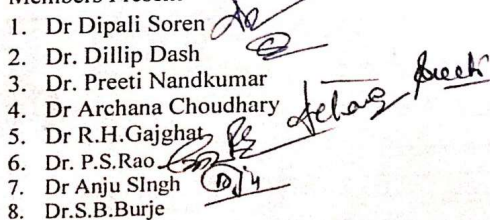 Members Present
1. Dr Dipali Soren
2. Dr. Dillip Dash
3. Dr. Preeti Nandkumar
4. Dr Archana Choudhary
5. Dr R.H.Gajghat
6. Dr. P.S.Rao
7. Dr Anju SIngh
8. Dr.S.B.Burje
Preeti